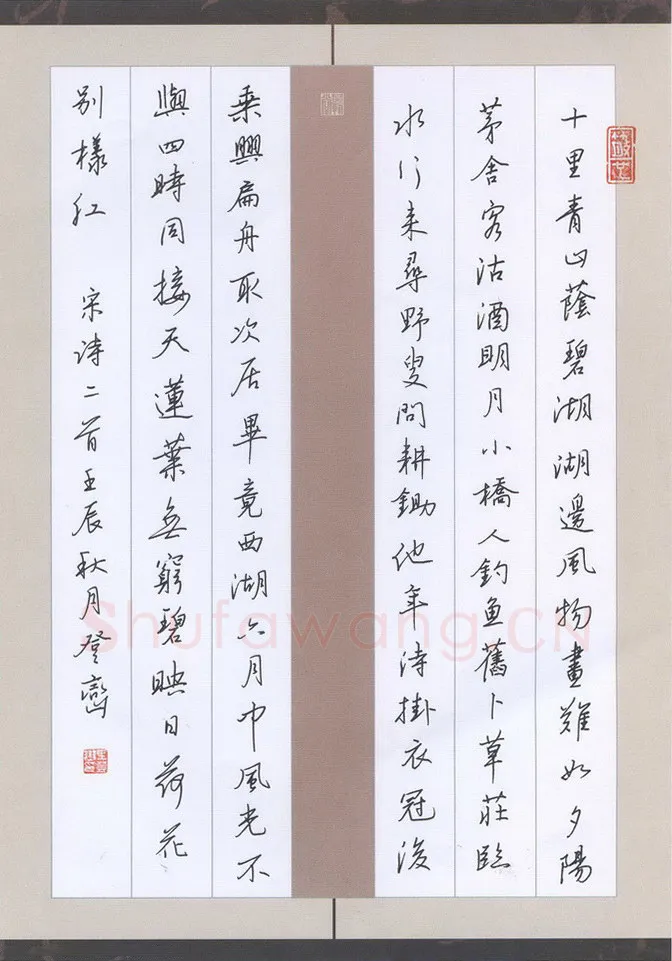 十里青山蔭碧湖湖邊風物畫難如夕陽
茅舍客沽酒明月小橋人釣魚舊卜草莊臨
水竹来尋野叟問耕鋤他年待掛衣冠後
乘興扁舟取次居畢竟西湖六月中風光不
與四時同接天蓮葉無窮碧映日荷花
別樣紅 宋詩二首壬辰秋月登巒
Shufawang.CN